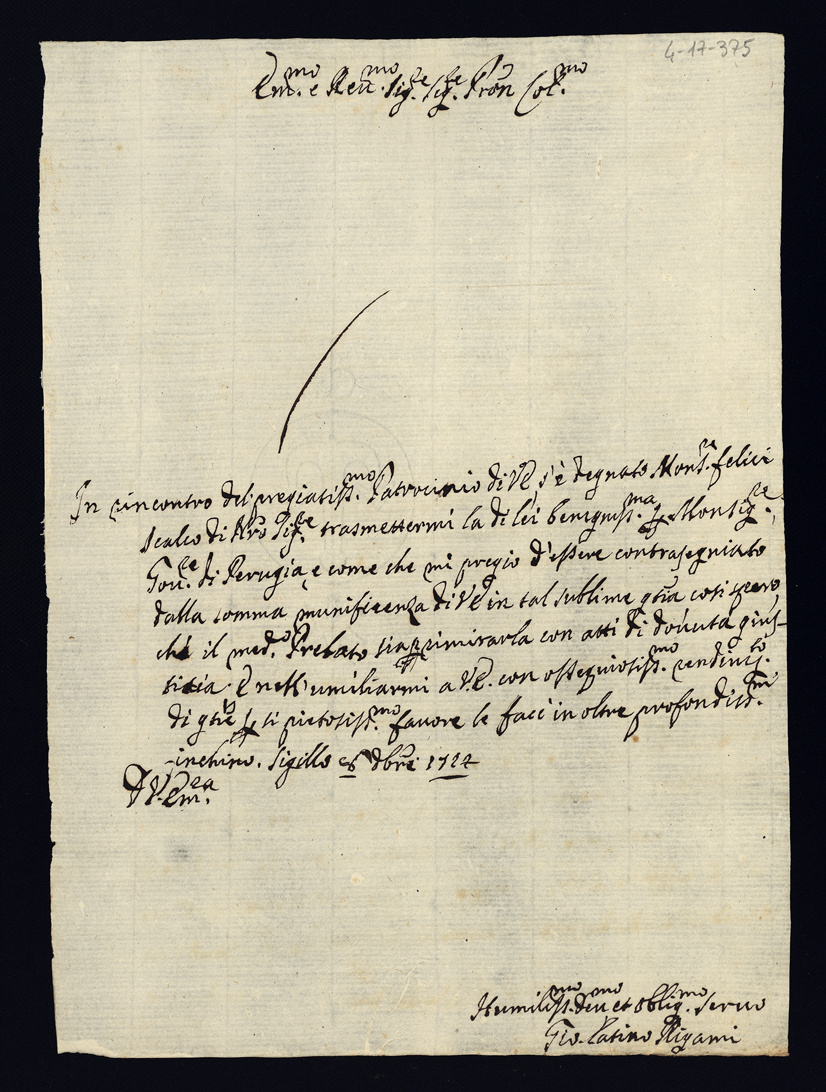 4-17-375
Em.mo e Reu.mo Sig.re Sig.re Pron Col.mo
In rincontro del pregiatiss.mo Patrocinio di VE s'è degnato Mons.re felici
scalco di Nro Sig.re trasmettermi la di lei benigniss.ma p Monsig.re
Gou.re di Perugia, e come che mi pregio d'essere contrasegniato
dalla somma munificenza di VE in tal sublime gtia cosi spero
che il med.o Prelato sia p rimirarla con atti di douuta gius-
titia. E nell'umiliarmi a VE. con ossequiosiss.mo rendim.to
di gtie p si pietosiss.mo fauore le facc in oltre profondiss.mo
inchino. Sigillo Xbre 1724
D V. Em.za
Humiliss.mo Deu.mo et Oblig.mo Seruo
Gio. Latino